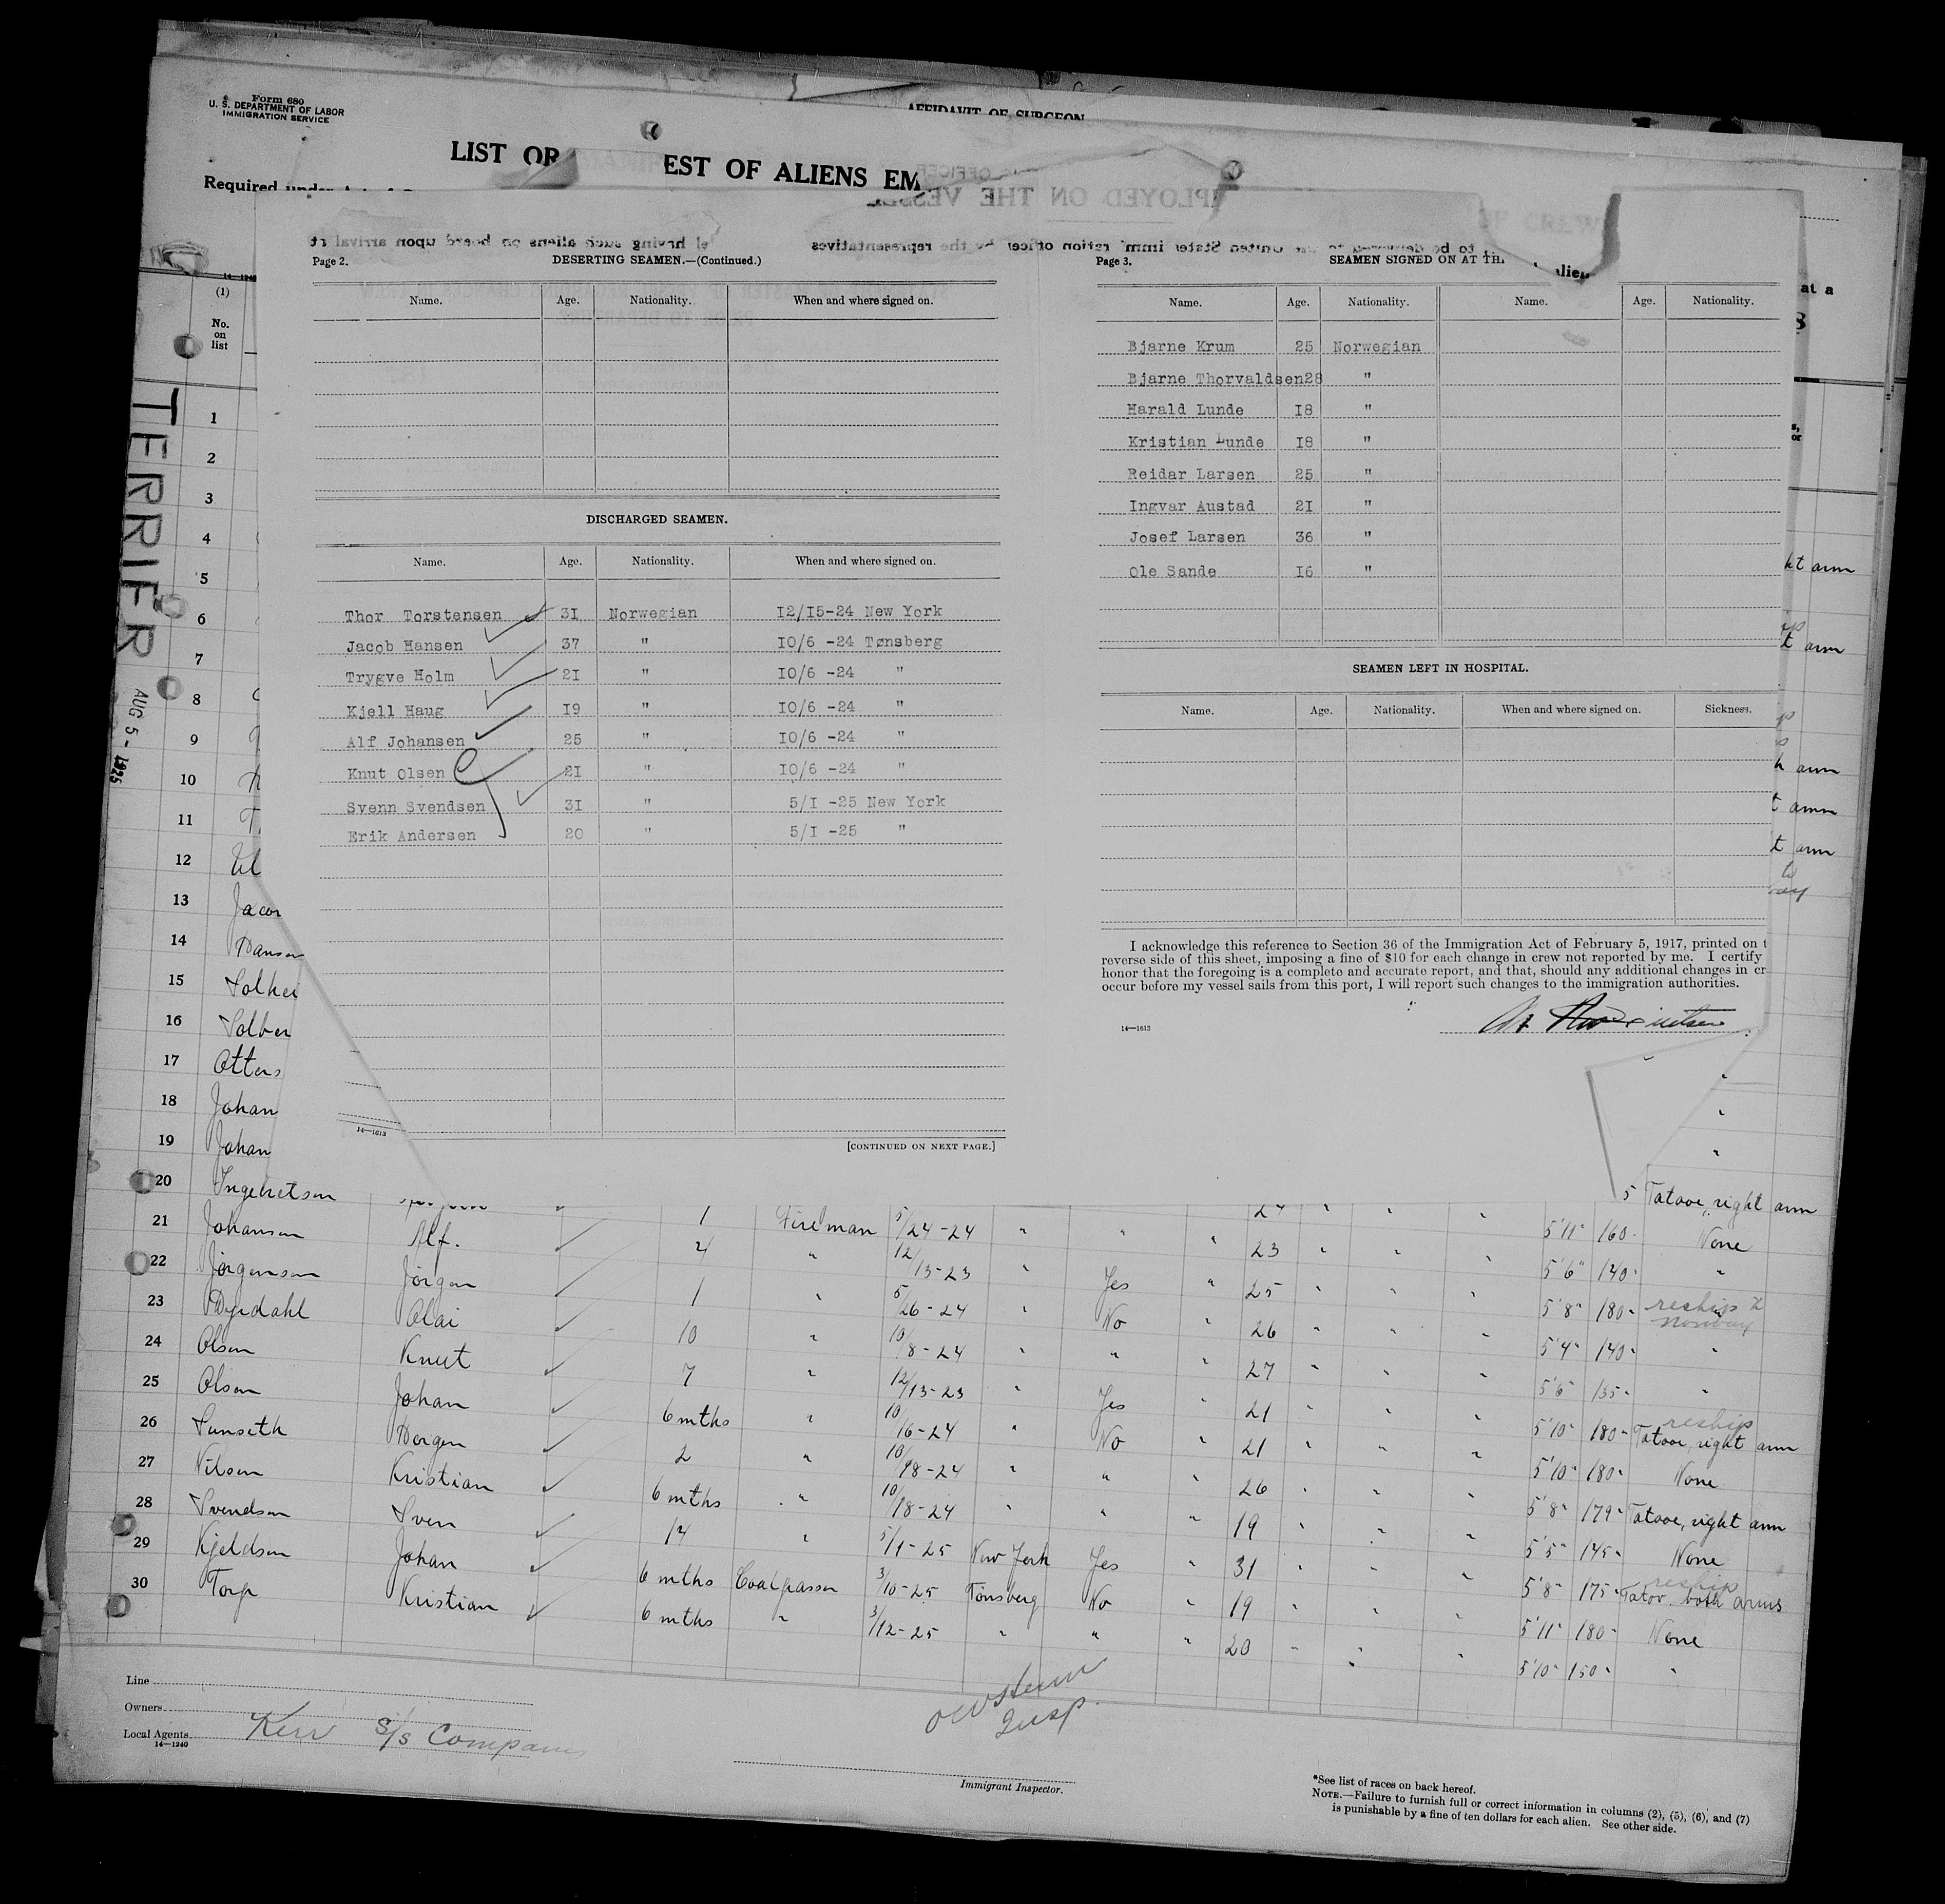 Form 680
U. S. DEPARTMENT OF LABOR
IMMIGRATION SERVICE
AFFIDAVIT OF SURGEON
LIST OR EST OF ALIENS EM
PLOYED ON THE VESSEL
Required under
el having such aliens on board upon arrival at
to be delivered to the United States immigration officer by the representatives
Page 2. DESERTING SEAMEN.—(Continued.)
Name. Age. Nationality. When and where signed on.
DISCHARGED SEAMEN.
Name. Age. Nationality. When and where signed on.
Thor Torstensen 31 Norwegian 12/15-24 New York
Jacob Hansen 37 " 10/6 -24 Tønsberg
Trygve Holm 21 " 10/6 -24 "
Kjell Haug 19 " 10/6 -24 "
Alf Johansen 25 " 10/6 -24 "
Knut Olsen 21 " 10/6 -24 "
Svenn Svendsen 31 " 5/1 -25 New York
Erik Andersen 20 " 5/1 -25 "
14—1613
[CONTINUED ON NEXT PAGE.]
Page 3. SEAMEN SIGNED ON AT TH
Name. Age. Nationality. Name. Age. Nationality.
Bjarne Krum 25 Norwegian
Bjarne Thorvaldsen 28 "
Harald Lunde 18 "
Kristian Lunde 18 "
Reidar Larsen 25 "
Ingvar Austad 21 "
Josef Larsen 36 "
Ole Sande 16 "
SEAMEN LEFT IN HOSPITAL.
Name. Age. Nationality. When and where signed on. Sickness.
I acknowledge this reference to Section 36 of the Immigration Act of February 5, 1917, printed on t
reverse side of this sheet, imposing a fine of $10 for each change in crew not reported by me. I certify
honor that the foregoing is a complete and accurate report, and that, should any additional changes in cr
occur before my vessel sails from this port, I will report such changes to the immigration authorities.
14—1613
TERRIER
AUG 5 - 1925
14—1240
(1)
No.
on
list
at a
8
1
2
3
4
5
6
7
8
9
10
11
12
13 Jacor
14 Hanse
15 Solhei
16 Solber
17 Otters
18 Johan
19 Johan
20 Ingebretsen 5 Tatooe, right arm
21 Johansen Alf. 1 Fireman 5/24-24 " " " 24 " " " 5'11" 160- None
22 Jörgensen Jörgen 4 " 12/13-23 " Yes " 23 " " " 5'6" 140- "
23 Dyrdahl Olai 1 " 5/26-24 " No " 25 " " " 5'8" 180- reship Norway
24 Olsen Knut 10 " 10/8-24 " " " 26 " " " 5'4" 140- "
25 Olsen Johan 7 " 12/13-23 " Yes " 27 " " " 5'6" 135- "
26 Sunseth Jörgen 6 mths " 10/16-24 " No " 21 " " " 5'10" 180- reship Tatooe, right arm
27 Nilsen Kristian 2 " 10/18-24 " " " 21 " " " 5'10" 180- None
28 Svendsen Sven 6 mths " 10/18-24 " " " 26 " " " 5'8" 179- Tatooe, right arm
29 Kjeldsen Johan 14 " 5/1-25 New York Yes " 19 " " " 5'5" 145- None
30 Torp Kristian 6 mths Coalpasser 3/10-25 Tönsberg No " 31 " " " 5'8" 175- reship Tatov. both arms
6 mths " 3/12-25 " " " 19 " " " 5'11" 180- None
20 " " " 5'10" 150- "
Line
Owners
Local Agents Kerr S/S Company
14—1240
Insp.
Immigrant Inspector.
*See list of races on back hereof.
NOTE.—Failure to furnish full or correct information in columns (2), (5), (6), and (7)
is punishable by a fine of ten dollars for each alien. See other side.